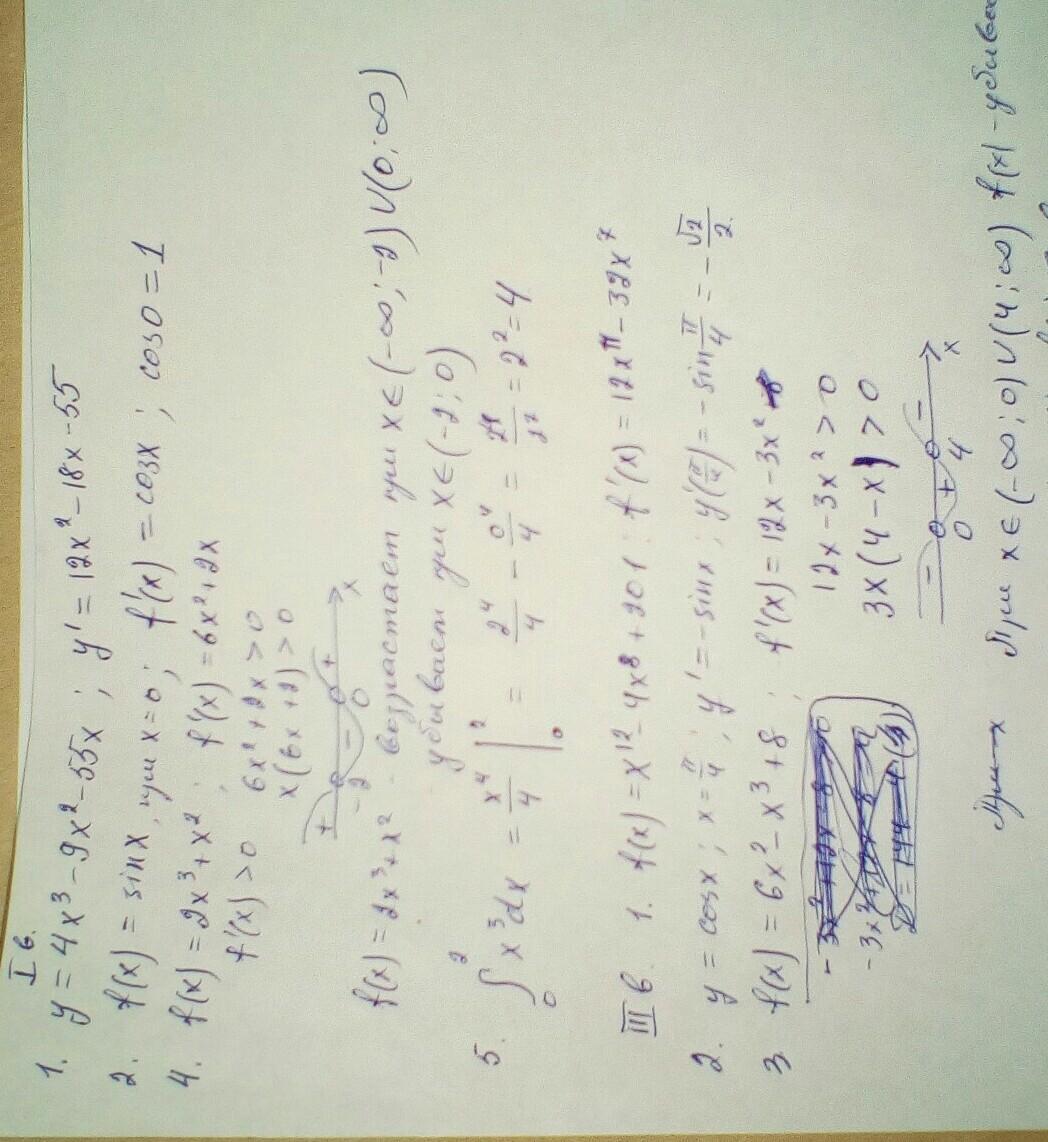 I в.
1. y = 4x³ - 9x² - 55x ; y' = 12x² - 18x - 55
2. f(x) = sinx, при x = 0; f'(x) = cosx ; cos0 = 1
4. f(x) = 2x³ + x² ; f'(x) = 6x² + 2x
f'(x) > 0 6x² + 2x > 0
x(6x + 2) > 0
+ - +
-2 0 x
f(x) = 2x³ + x² - возрастает при x ∈ (-∞; -2) ∪ (0; ∞)
убывает при x ∈ (-2; 0)
5. ∫₀² x³dx = x⁴/4 |₀² = 2⁴/4 - 0⁴/4 = 2⁴/2² = 2² = 4
III в. 1. f(x) = x¹² - 4x⁸ + 201 ; f'(x) = 12x¹¹ - 32x⁷
2. y = cosx ; x = π/4 ; y' = -sinx ; y'(π/4) = -sin π/4 = -√2/2
3 f(x) = 6x² - x³ + 8 ; f'(x) = 12x - 3x²
12x - 3x² > 0
3x(4 - x) > 0
- + -
0 4 x
При x ∈ (-∞; 0) ∪ (4; ∞) f(x) -